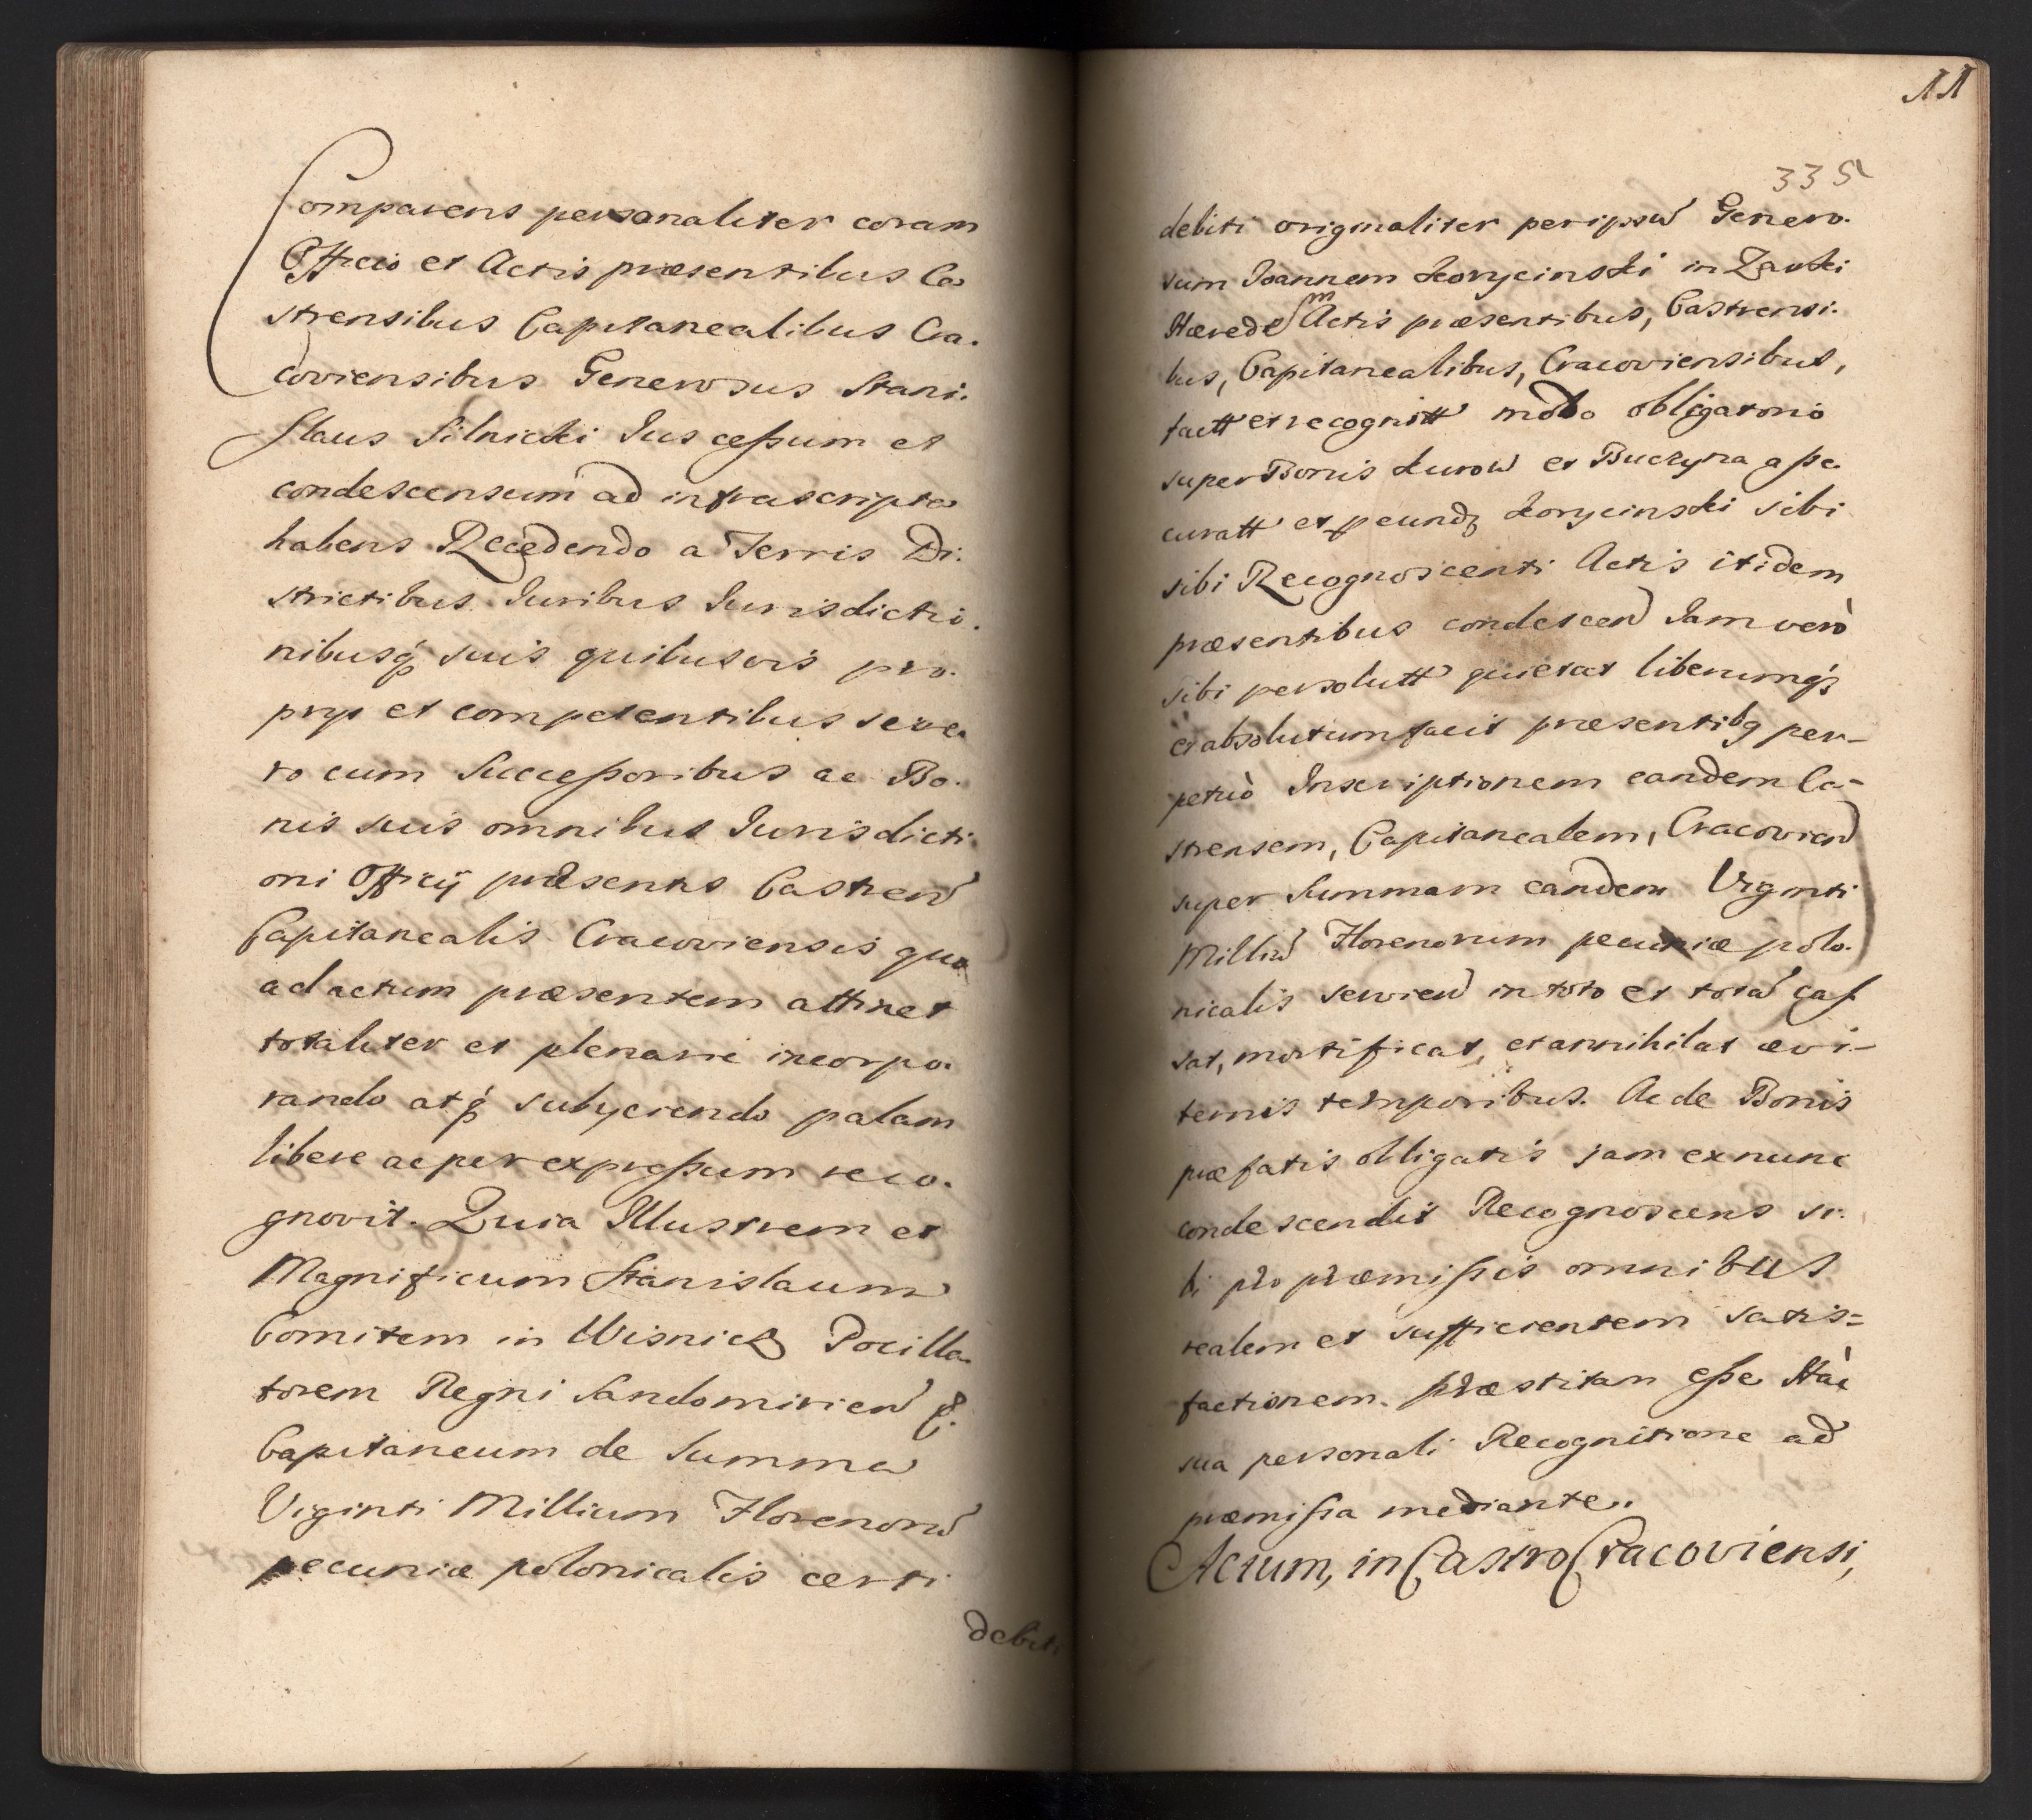 Comparens personaliter coram
Officio et Actis præsentibus Ca
strensibus Capitanealibus Cra.
coviensibus Generosus Stani.
slaus Silnicki Jus cessum et
condescensum ad infrascripta
habens Recedendo a Terris Di.
strictibus Juribus Jurisdictio.
nibusq suis quibusvis pro.
prys et competentibus seve
ro cum Successoribus ac Bo.
nis suis omnibus Jurisdicti
oni Officij præsentis Castren
Capitanealis Cracoviensis quo
ad actum præsentem attinet
totaliter et plenarie incorpo.
rando atq subyciendo palam
libere ac per expressum reco.
gnovit. Quia Illustrem et
Magnificum Stanislaum
Comitem in Wisnicz Pocilla
torem Regni Sandomirien &.
Capitaneum de Summa
Viginti Millium Florenorum
pecuniæ polonicalis certi
debiti
11
335
debiti originaliter per ipsum Genero.
sum Joannem Korycinski in Zarki
Hærede m Actis præsentibus, Castrensi.
bus, Capitanealibus, Cracoviensibus,
factt et recognitt modo obligatorio
super Bonis Kurow et Buczyna asse
curatt et p eundq Korycinski sibi
sibi Recognoscenti Actis itidem
præsentibus condescen Jam verò
sibi persolutt quietat liberumq
et absolutum facit præsentibq per-
petuò Inscriptionem eandem Ca-
strensem, Capitanealem, Cracovien
super Summam eandem Viginti
Milliu Florenorum pecuniæ polo.
nicalis servien in toto et totam cas
sat, mortificat, et annihilat ævi-
ternis temporibus. Ac de Bonis
præfatis obligatis jam exnunc
condescendit Recognoscens si.
bi pro præmissis omnibus
realem et sufficientem satis=
factionem. præstitam esse Hàc
sua personali Recognitione ad
præmissa mediante.
Actum, in Castro Cracoviensi,